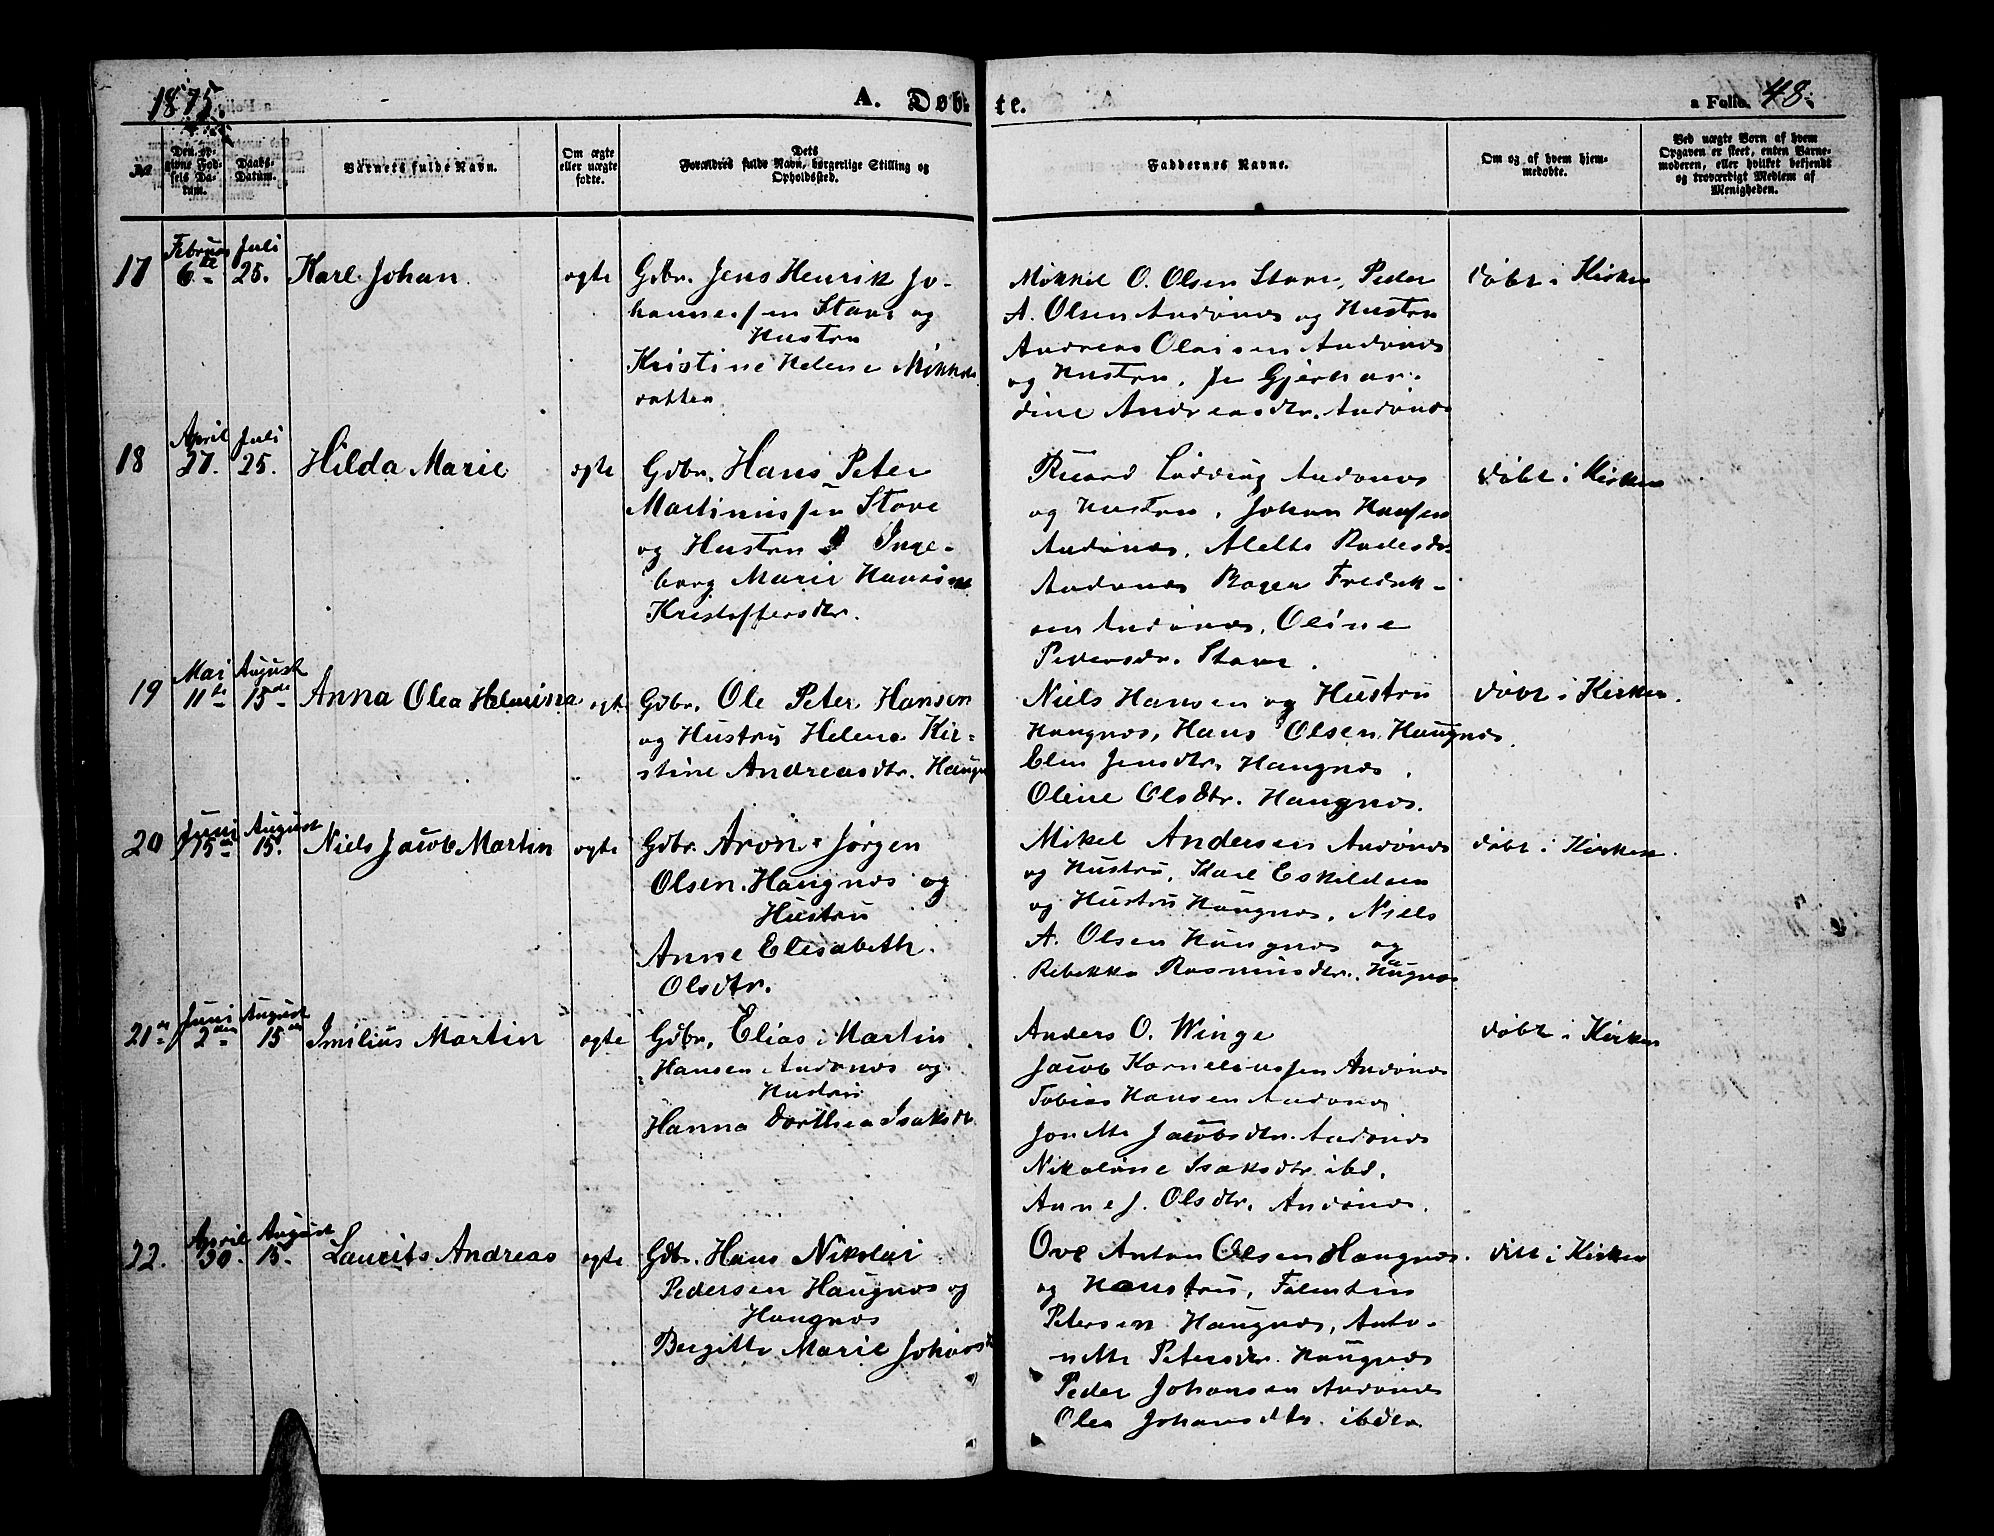 1875.
A. Døb-
te.
a Folio. 48.
№
Den opgivne Fødsels Datum.
Daabs-Datum.
Barnets fulde Navn.
Om ægte eller uægte født.
Dets Forældres fulde Navn, borgerlige Stilling og Opholdssted.
Faddernes Navne.
Om og af hvem hjemmedøbt.
Ved uægte Børn af hvem Opgaven er skeet, enten Barnemoderen, eller hvilket bekjendt og troværdigt Medlem af Menigheden.
17
Februar
6te
Juli
25.
Karl Johan.
ægte
Gdbr. Jens Henrik Jo-
hannessen Stave og
Hustru
Kristine Helene Mikkels
datter
Mikkel O. Olsen Stave, Peder
A. Olsen Andønæs og Hustru
Andreas Olaisen Andønæs
og Hustru, Gjerhar-
dine Andreasdtr. Andønæs
døbt i Kirken
18
April
27.
Juli
25.
Hilda Marie
ægte
Gdbr. Hans Peter
Martinussen Stave
og Hustru Inge-
borg Marie Hansine
Kristoffersdtr.
Andønæs
og Hustru, Johan Hansen
Andønæs,
Andønæs Fredrik-
sen Andønæs, Oline
Pedersdr. Stave.
døbt i Kirken
19
Mai
11te
August
15de
Anna Olea Helmina
ægte
Gdbr. Ole Peter Hansen
og Hustru Helena Kir-
stine Andreasdtr. Haugn
Niels Hansen og Hustru
Haugnæs, Hans Olsen Haugnæs
Elen Jensdtr. Haugnæs.
Oline Olsdtr. Haugnæs.
døbt i Kirken.
20
Juni
15de
August
15.
Niels Jacob Martin
ægte
Gdbr. Aron Jørgen
Olsen Haugnæs og
Hustru
Anne Elisabeth
Olsdtr.
Mikel Andersen Andønæs
og Hustru, Karl Eskildsen
og Hustru Haugnæs, Niels
A. Olsen Haugnæs og
Rebekka Rasmusdtr. Haugnæs
døbt i Kirken.
21
Juni
2den
August
15
Imilius Martin
ægte
Gdbr. Elias Martin
Hansen Andønæs og
Hustru
Hanna Dorthea Isaksdtr
Anders O. Winge
Jacob Korneliussen Andønæs
Tobias Hansen Andønæs
Jonette Jacobsdtr. Andønæs
Nikoline Isaksdtr. ibd.
Anne J. Olsdtr. Andønæs.
døbt i Kirken
22.
April
30.
August
15.
Laurits Andreas
ægte
Gdbr. Hans Nikolai
Pedersen Haugnæs og
Haugnæs
Bergitte Marie Johansd
Ove Anton Olsen Haugnæs.
og Hanstru, Falentin
Petersen Haugnæs, Anto-
nette Petersdtr. Haugnæs
Peder Johansen Andønæs
Olea Johansdtr. ibden
døbt i Kirken